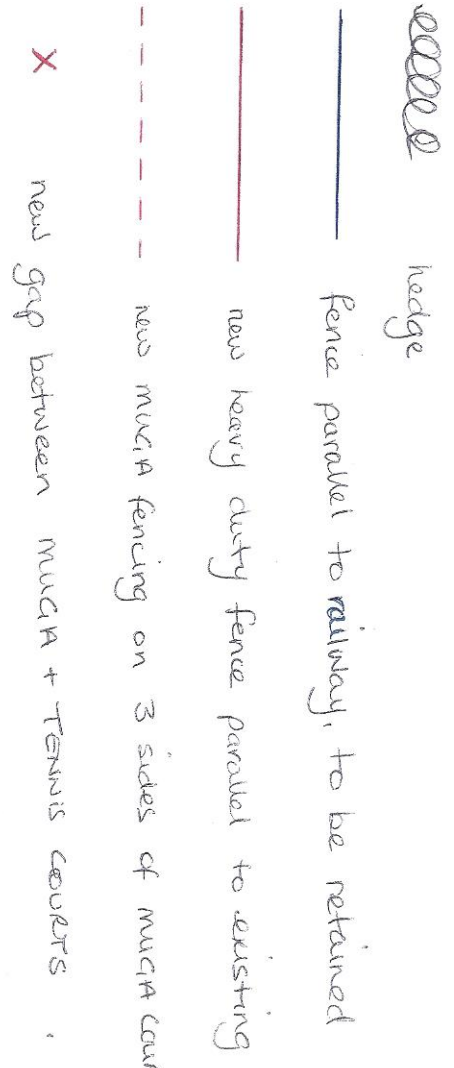 hedge
fence parallel to railway, to be retained
new heavy duty fence parallel to existing
new MUGA fencing on 3 sides of MUGA
new gap between MUGA + TENNIS COURTS .